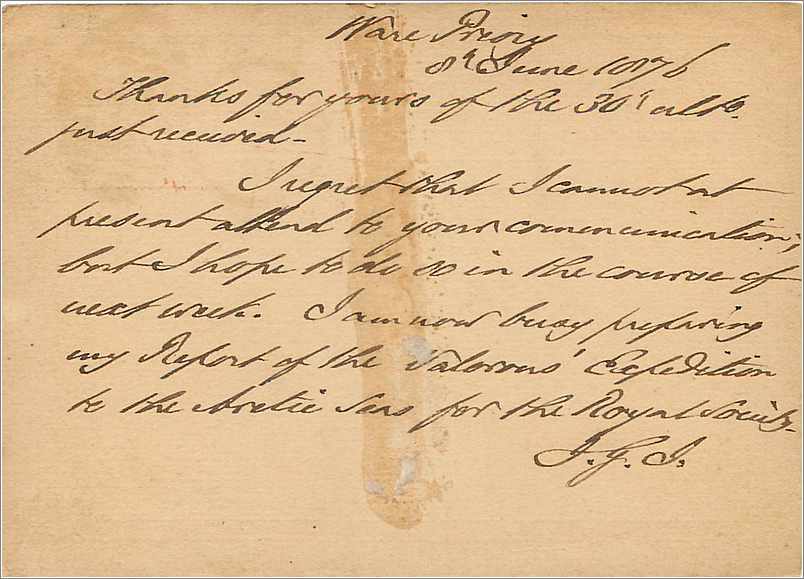 Ware Priory
8th June 1876
Thanks for yours of the 30th ulto.
just received -
I regret that I cannot at
present attend to your communication;
but I hope to do so in the course of
next week. I am now busy preparing
my Report of the 'Valorous' Expedition
to the Arctic Seas for the Royal Society.
J. G. J.